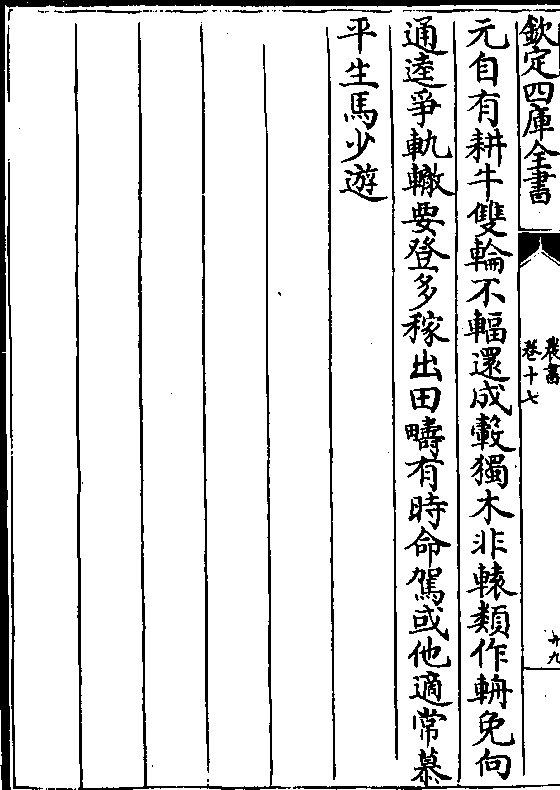 欽定四庫全書
農書
卷十七
廿九
元自有耕牛雙輪不輻還成轂獨木非轅類作輈免向
通逵爭軌轍要登多稼出田疇有時命駕或他適常慕
平生馬少遊